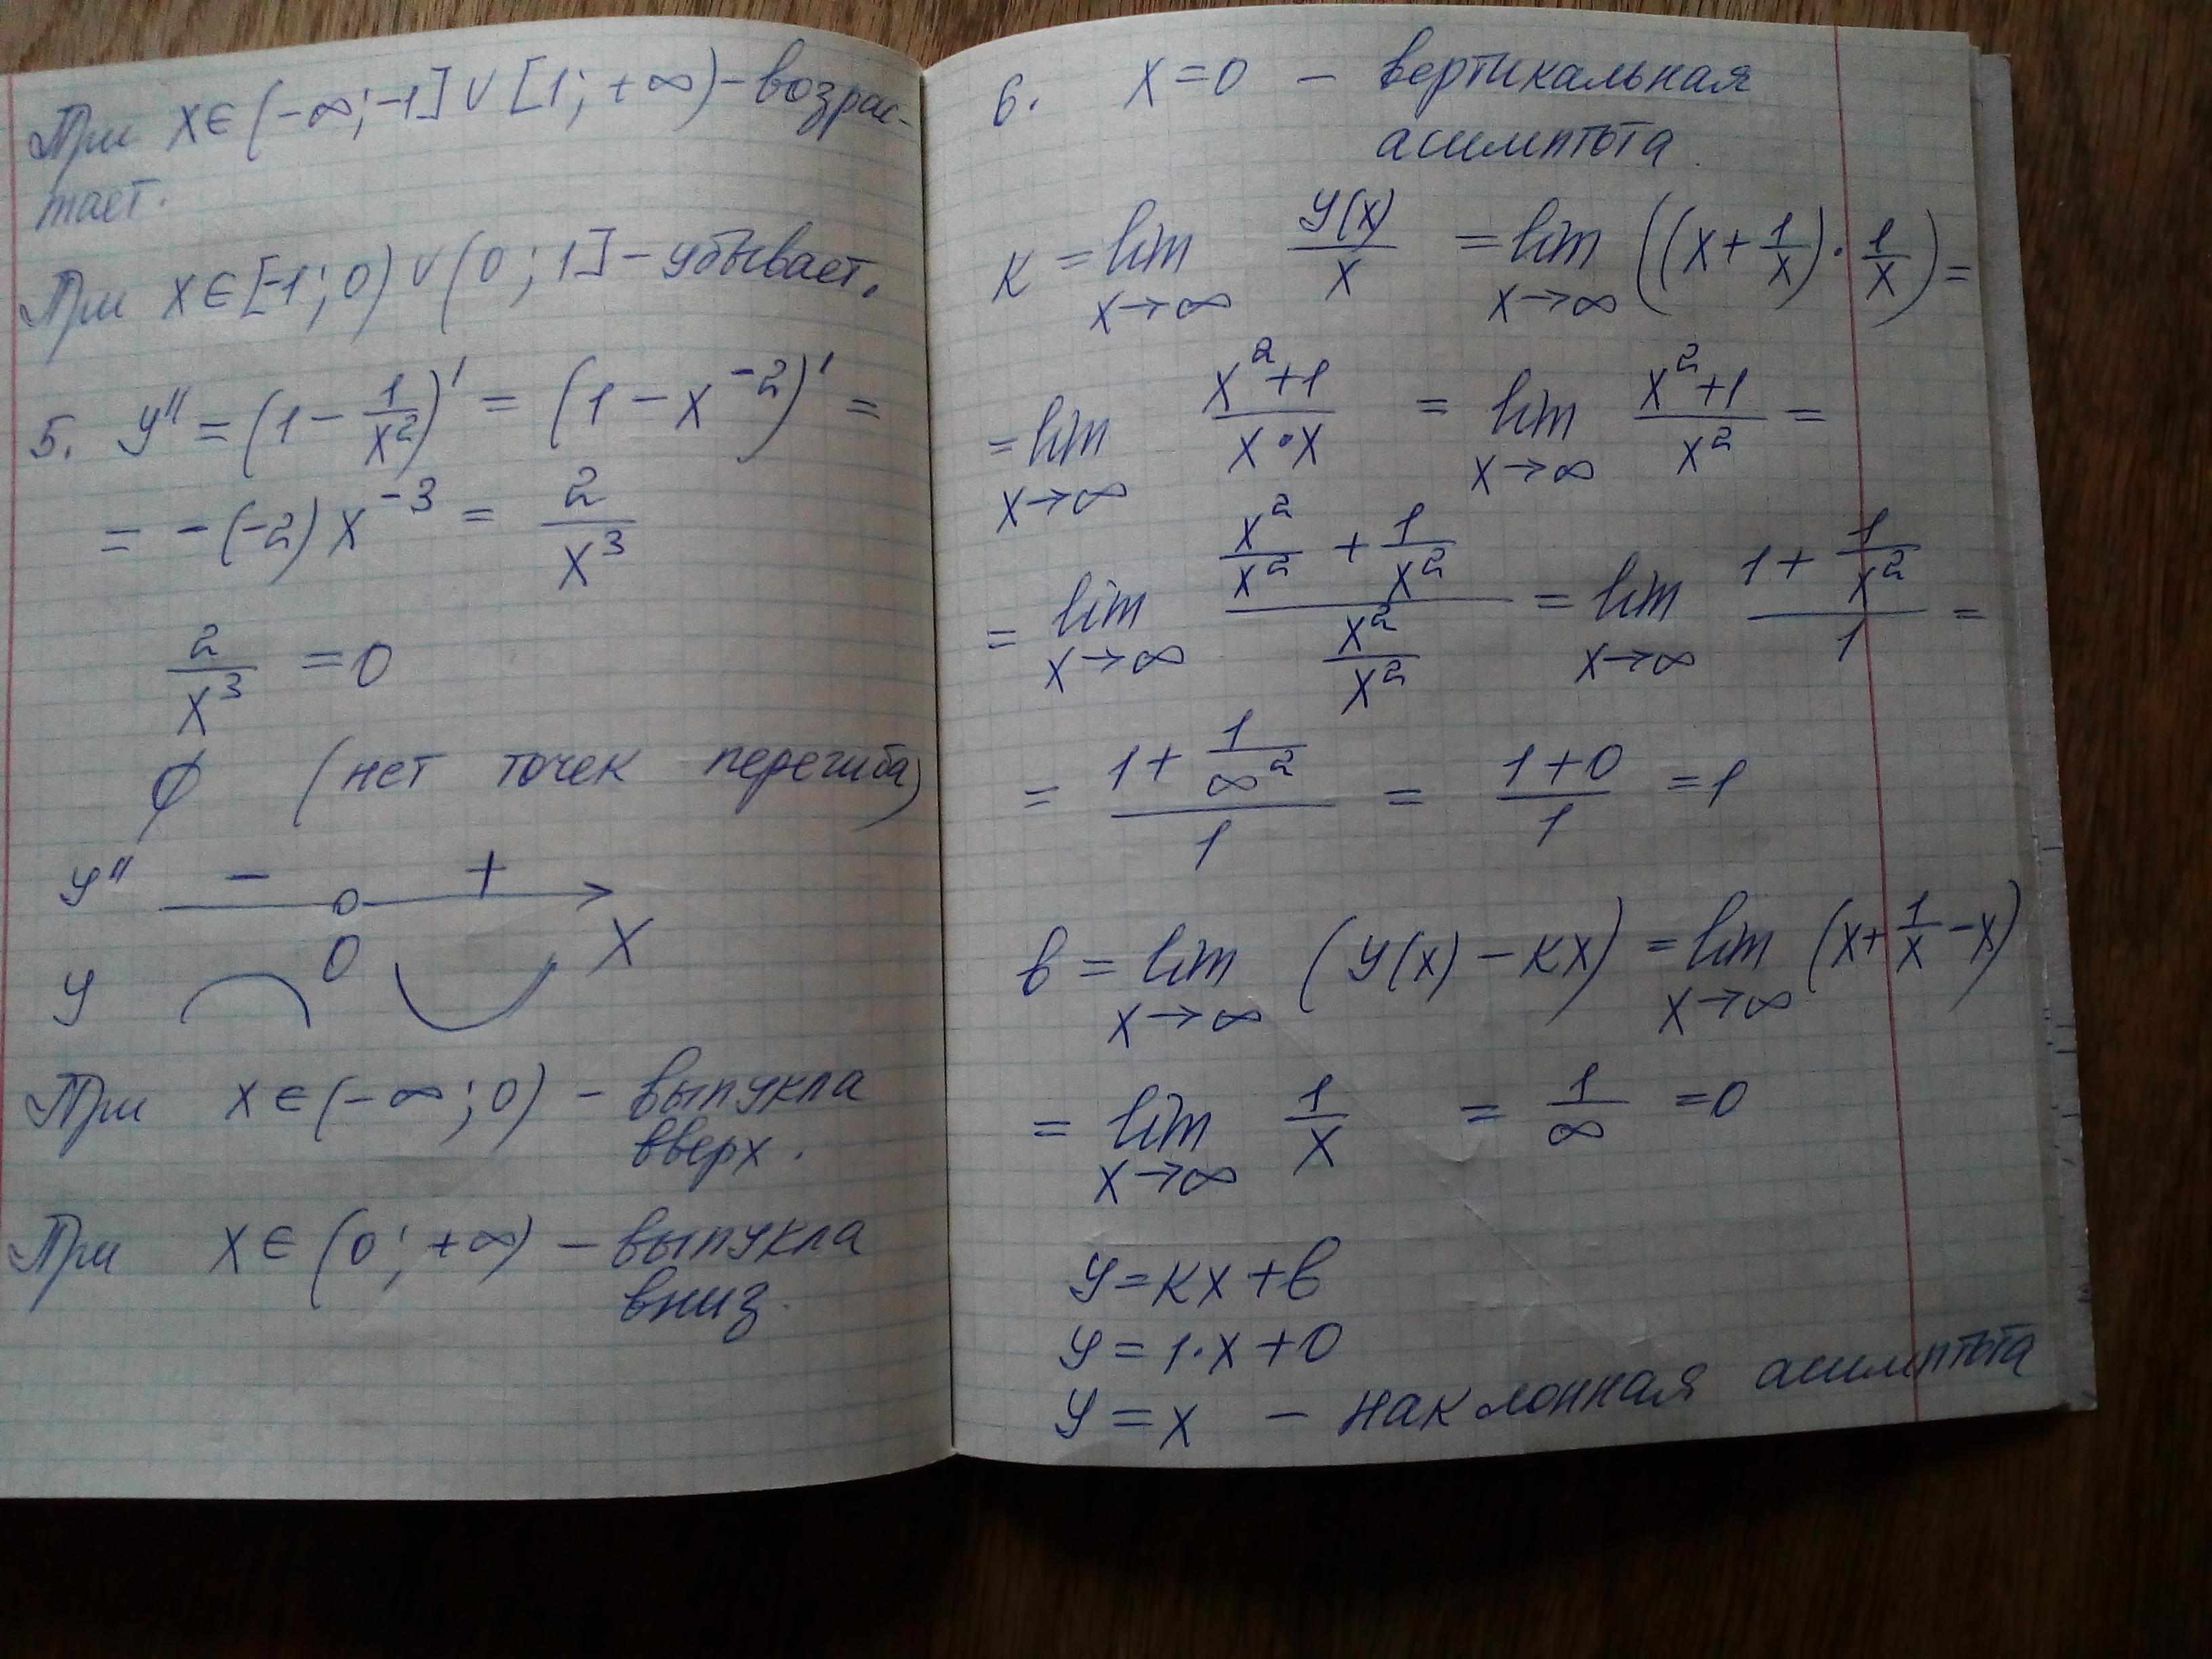 При x∈(-∞;-1]∪[1;+∞) – возрас-
тает.
При x∈[-1;0)∪(0;1] – убывает.
5. y'' = (1 - 1/x²)' = (1 - x⁻²)' =
= -(-2)x⁻³ = 2/x³
2/x³ = 0
∅ (нет точек перегиба)
y'' - +
0 x
y
При x∈(-∞;0) – выпукла
вверх.
При x∈(0;+∞) – выпукла
вниз.
6. x=0 – вертикальная
асимптота.
к = lim x→∞ y(x)/x = lim x→∞ ((x + 1/x)·1/x) =
= lim x→∞ (x²+1)/(x·x) = lim x→∞ (x²+1)/x² =
= lim x→∞ (x²/x² + 1/x²)/(x²/x²) = lim x→∞ (1 + 1/x²)/1 =
= (1 + 1/∞²)/1 = (1+0)/1 = 1
в = lim x→∞ (y(x) - кx) = lim x→∞ (x + 1/x - x)
= lim x→∞ 1/x = 1/∞ = 0
y = кx + в
y = 1·x + 0
y = x – наклонная асимптота